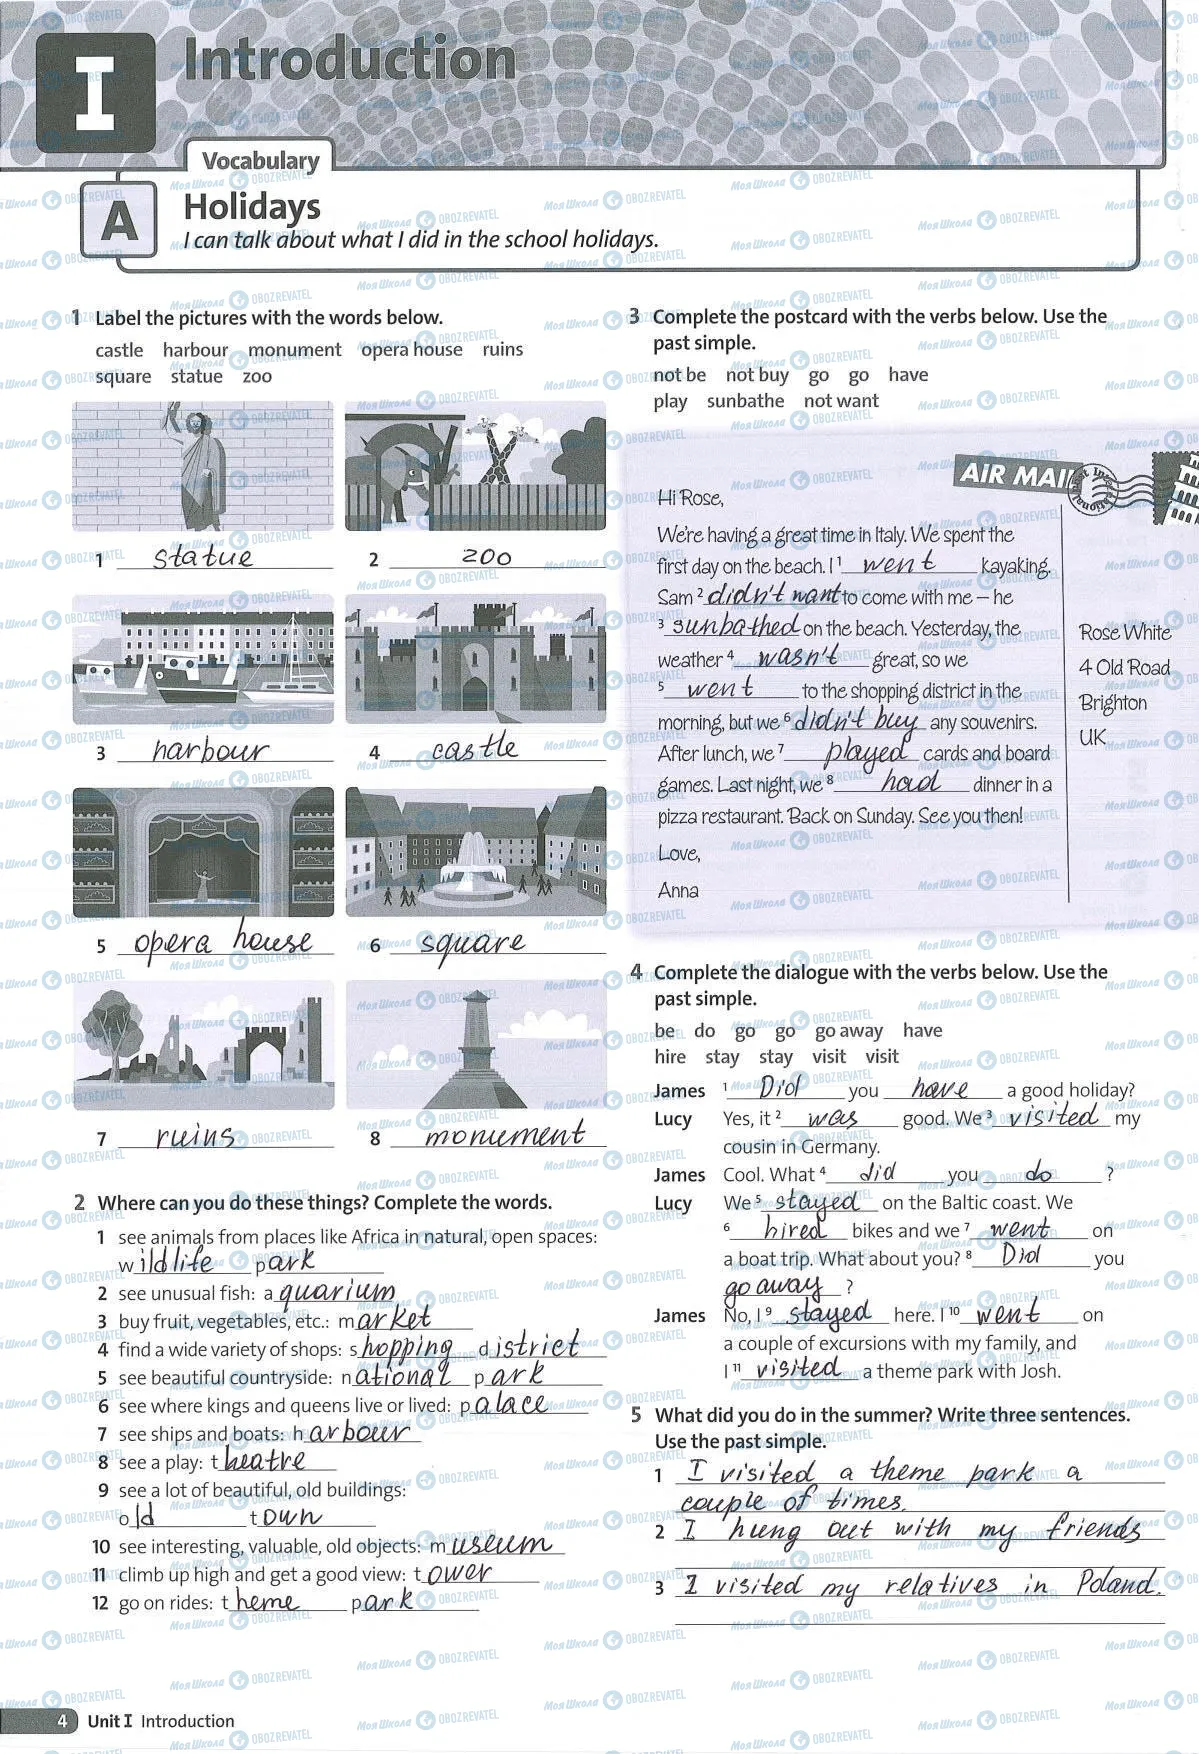 I Introduction
Vocabulary
A Holidays
I can talk about what I did in the school holidays.
1 Label the pictures with the words below.
castle harbour monument opera house ruins
square statue zoo
1 statue 2 zoo
3 harbour 4 castle
5 opera house 6 square
7 ruins 8 monument
2 Where can you do these things? Complete the words.
1 see animals from places like Africa in natural, open spaces:
wildlife park
2 see unusual fish: aquarium
3 buy fruit, vegetables, etc.: market
4 find a wide variety of shops: shopping district
5 see beautiful countryside: national park
6 see where kings and queens live or lived: palace
7 see ships and boats: harbour
8 see a play: theatre
9 see a lot of beautiful, old buildings:
old town
10 see interesting, valuable, old objects: museum
11 climb up high and get a good view: tower
12 go on rides: theme park
3 Complete the postcard with the verbs below. Use the
past simple.
not be not buy go go have
play sunbathe not want
AIR MAIL
Hi Rose,
We're having a great time in Italy. We spent the
first day on the beach. I 1 went kayaking.
Sam 2 didn't want to come with me – he
3 sunbathed on the beach. Yesterday, the
weather 4 wasn't great, so we
5 went to the shopping district in the
morning, but we 6 didn't buy any souvenirs.
After lunch, we 7 played cards and board
games. Last night, we 8 had dinner in a
pizza restaurant. Back on Sunday. See you then!
Love,
Anna
Rose White
4 Old Road
Brighton
UK
4 Complete the dialogue with the verbs below. Use the
past simple.
be do go go go away have
hire stay stay visit visit
James 1 Did you have a good holiday?
Lucy Yes, it 2 was good. We 3 visited my
cousin in Germany.
James Cool. What 4 did you do ?
Lucy We 5 stayed on the Baltic coast. We
6 hired bikes and we 7 went on
a boat trip. What about you? 8 Did you
go away ?
James No, I 9 stayed here. I 10 went on
a couple of excursions with my family, and
I 11 visited a theme park with Josh.
5 What did you do in the summer? Write three sentences.
Use the past simple.
1 I visited a theme park a
couple of times.
2 I hung out with my friends
3 I visited my relatives in Poland.
4 Unit I Introduction
МояШкола OBOZREVATEL